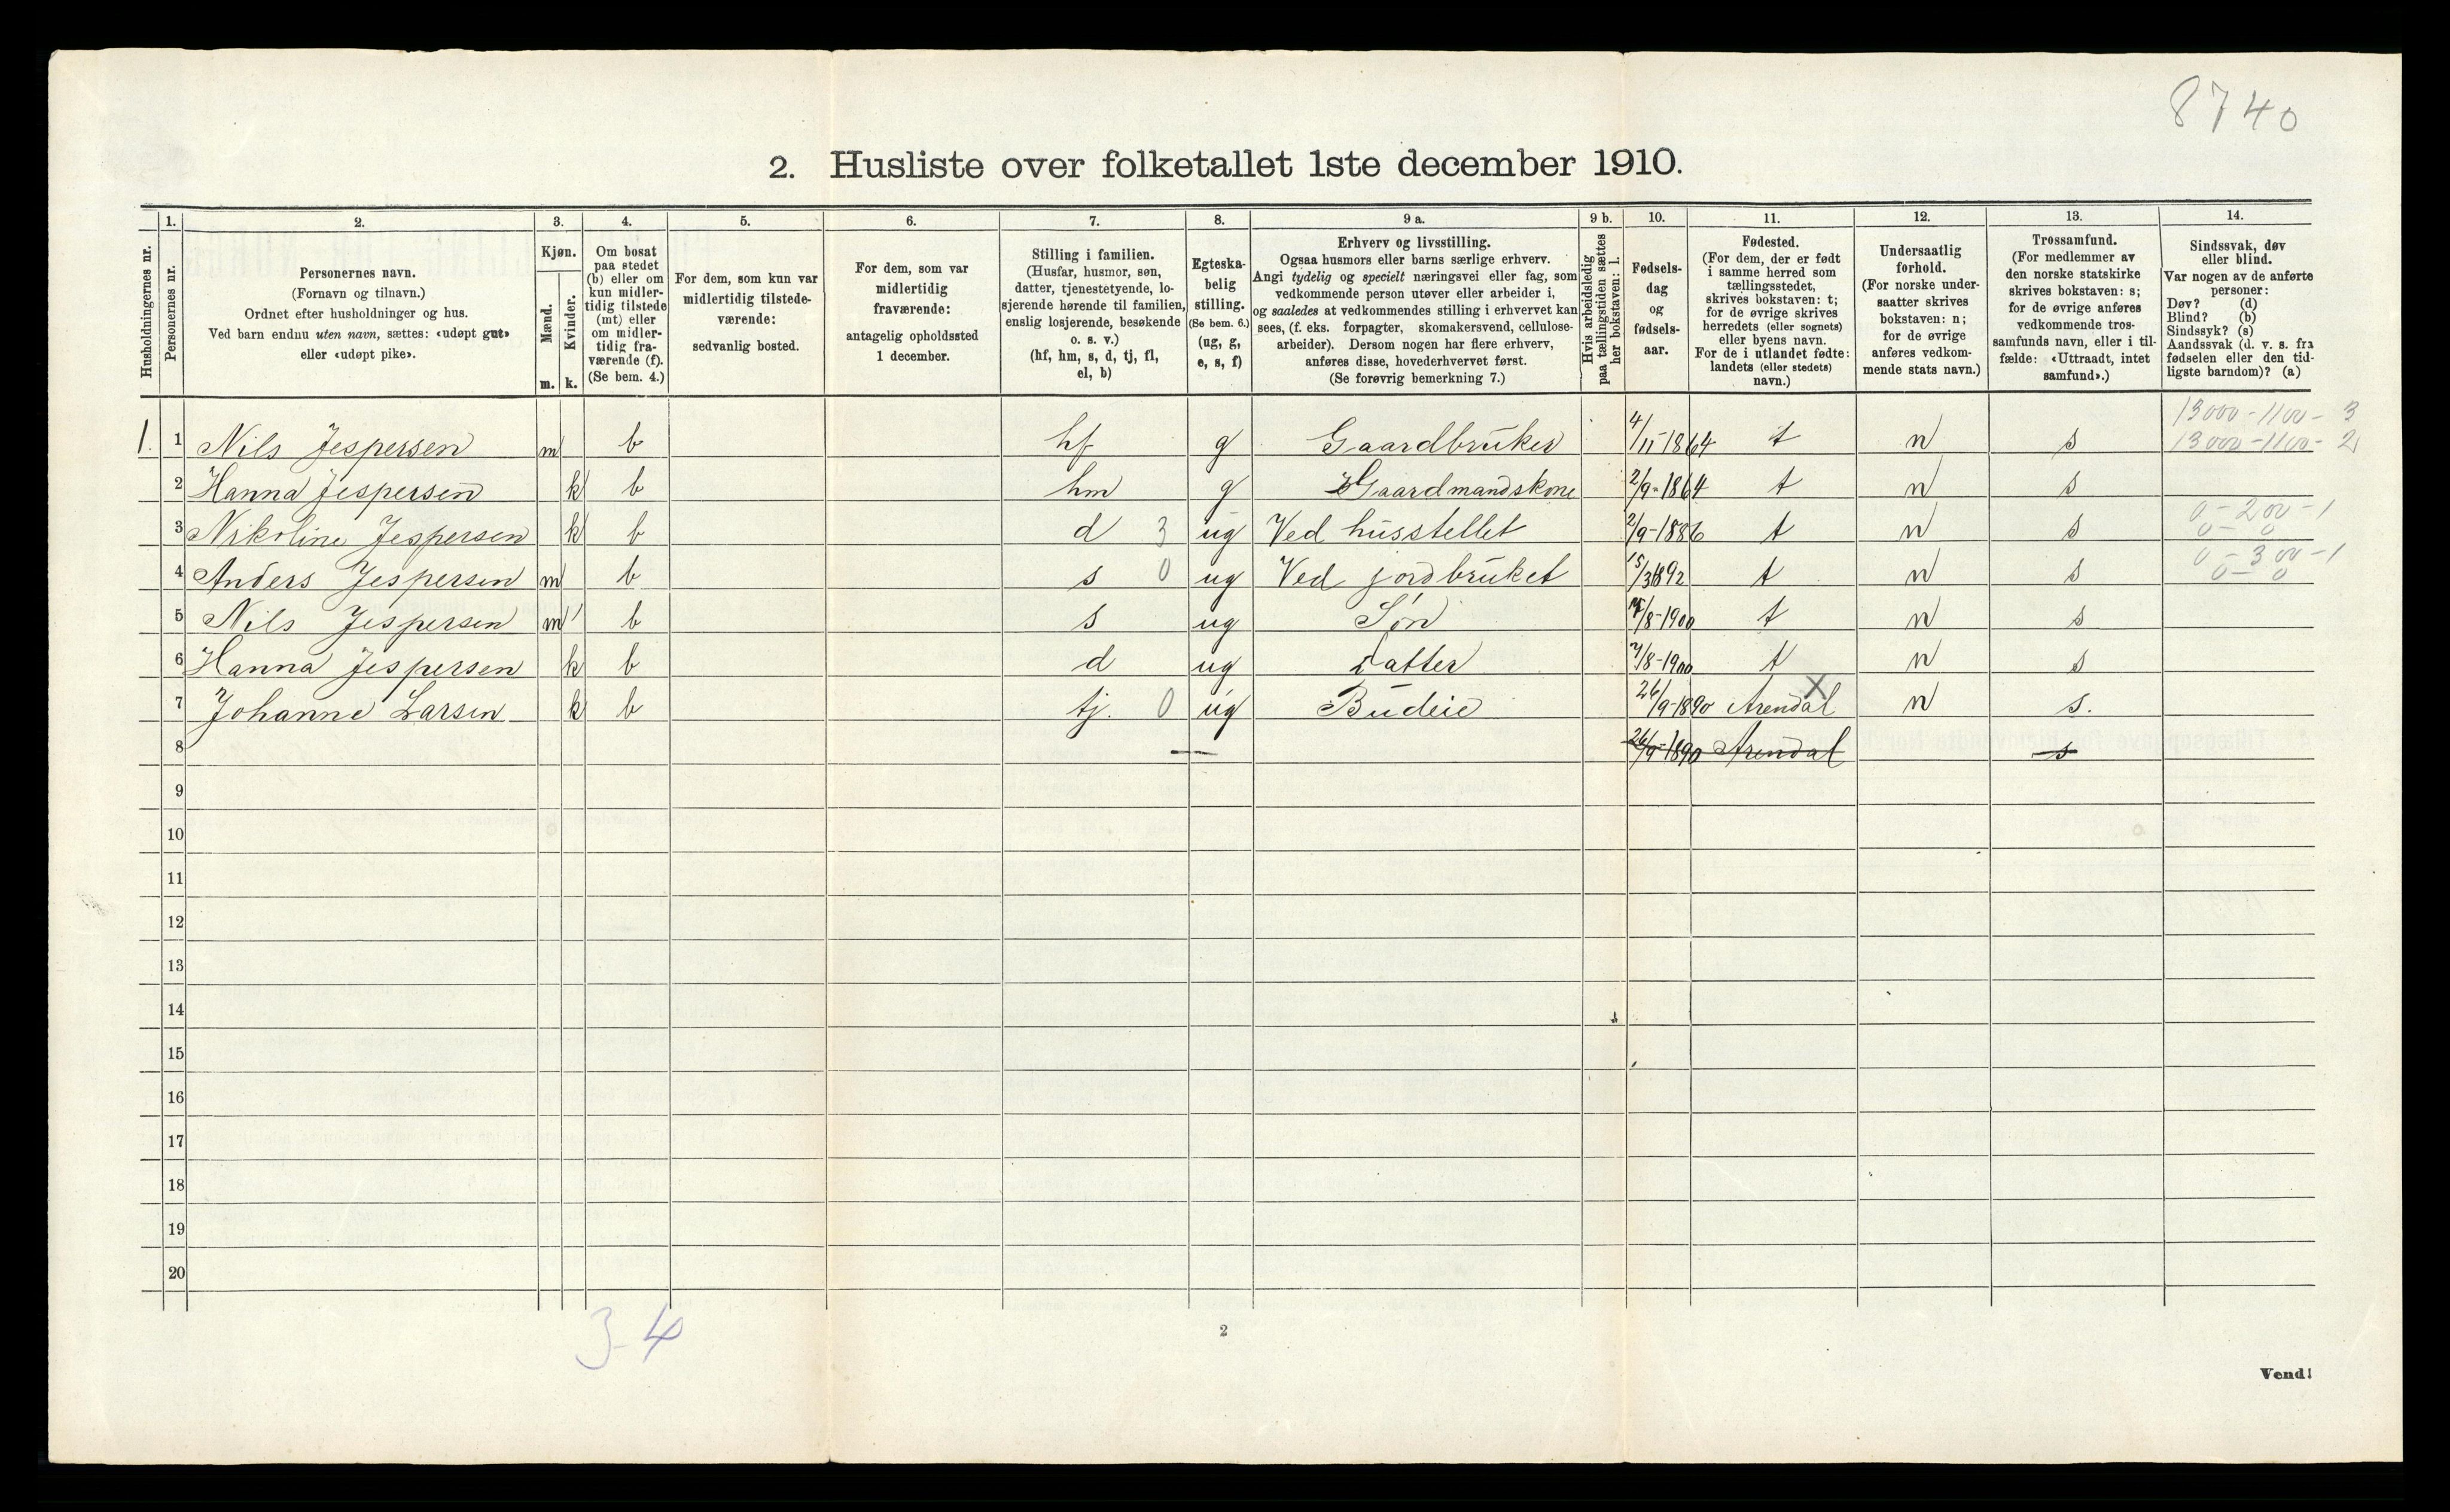 8740
2. Husliste over folketallet 1ste december 1910.
Husholdningernes nr.
1.
Personernes nr.
2.
Personernes navn.
(Fornavn og tilnavn.)
Ordnet efter husholdninger og hus.
Ved barn endnu uten navn, sættes: «udøpt gut»
eller «udøpt pike».
3.
Kjøn.
Mænd.
Kvinder.
m. k.
4.
Om bosat
paa stedet
(b) eller om
kun midler-
tidig tilstede
(mt) eller
om midler-
tidig fra-
værende (f).
(Se bem. 4.)
5.
For dem, som kun var
midlertidig tilstede-
værende:
sedvanlig bosted.
6.
For dem, som var
midlertidig
fraværende:
antagelig opholdssted
1 december.
7.
Stilling i familien.
(Husfar, husmor, søn,
datter, tjenestetyende, lo-
sjerende hørende til familien,
enslig losjerende, besøkende
o. s. v.)
(hf, hm, s, d, tj, fl,
el, b)
8.
Egteska-
belig
stilling.
(Se bem. 6.)
(ug, g,
e, s, f)
9 a.
Erhverv og livsstilling.
Ogsaa husmors eller barns særlige erhverv.
Angi tydelig og specielt næringsvei eller fag, som
vedkommende person utøver eller arbeider i,
og saaledes at vedkommendes stilling i erhvervet kan
sees, (f. eks. forpagter, skomakersvend, cellulose-
arbeider). Dersom nogen har flere erhverv,
anføres disse, hovederhvervet først.
(Se forøvrig bemerkning 7.)
9 b.
Hvis arbeidsledig
paa tællingstiden sættes
her bokstaven: l.
10.
Fødsels-
dag
og
fødsels-
aar.
11.
Fødested.
(For dem, der er født
i samme herred som
tællingsstedet,
skrives bokstaven: t;
for de øvrige skrives
herredets (eller sognets)
eller byens navn.
For de i utlandet fødte:
landets (eller stedets)
navn.)
12.
Undersaatlig
forhold.
(For norske under-
saatter skrives
bokstaven: n;
for de øvrige
anføres vedkom-
mende stats navn.)
13.
Trossamfund.
(For medlemmer av
den norske statskirke
skrives bokstaven: s;
for de øvrige anføres
vedkommende tros-
samfunds navn, eller i til-
fælde: «Uttraadt, intet
samfund».)
14.
Sindssvak, døv
eller blind.
Var nogen av de anførte
personer:
Døv? (d)
Blind? (b)
Sindssyk? (s)
Aandssvak (d. v. s. fra
fødselen eller den tid-
ligste barndom)? (a)
13000-1100-3
1. 1 Nils Jespersen m b hf g Gaardbruker 4/11-1864 t n s 13000-1100-2
2 Hanna Jespersen k b hm g Gaardmandskone 2/9-1864 t n s
0-200-1
3 Nikoline Jespersen k b d 3 ug Ved husstellet 2/9-1886 t n s 0-0
0-300-1
4 Anders Jespersen m b s 0 ug Ved jordbruket 15/3 1892 t n s 0-0
5 Nils Jespersen m b s ug Søn 7/8-1900 t n s
6 Hanna Jespersen k b d ug datter 7/8-1900 t n s
7 Johanne Larsen k b tj. 0 ug Budeie 26/9-1890 Arendal X n s.
8 — 26/9-1890 Arendal s
9
10
11
12
13
14
15
16
17
18
19
20
3-4
2
Vend!